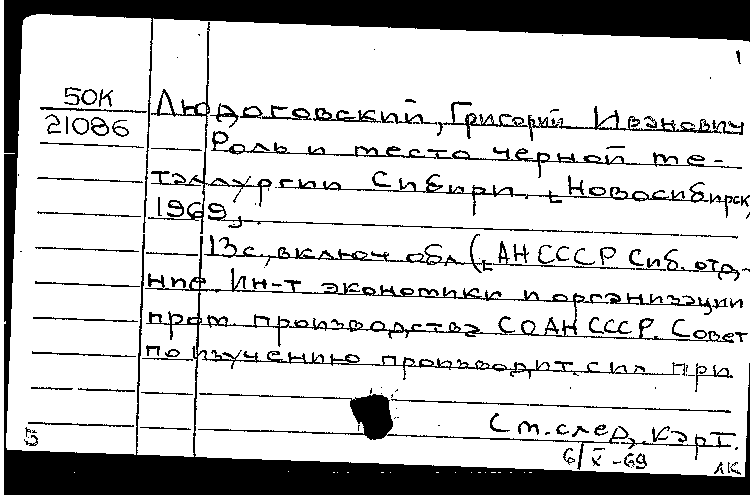 1
50К
21086
Людоговский, Григорий Иванович
Роль и место черной ме-
таллургии Сибири. [Новосибирск,
1969].
13 с., включ. обл. ([АН СССР Сиб. отд-
ние. Ин-т экономики и организации
пром. производства СОАН СССР. Совет
по изучению производит. сил при
См. след. карт.
5
6/X-69
ЛК